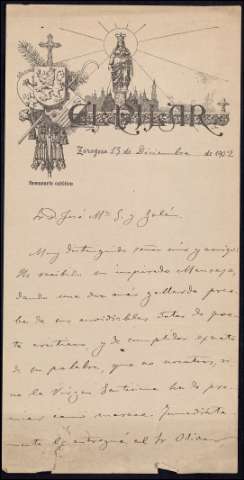 EL PILAR
Zaragoza 13 de Diciembre de 1902
Semanario católico
D. José Mª G. y Galán
Muy distinguido señor mío y amigo:
He recibido su inspirado Mensaje,
dando una vez más gallarda prue-
ba de sus envidiables dotes de poe-
ta cristiano, y de cumplidor exacto
de su palabra, que no nosotros, si-
no la Virgen Santísima ha de pre-
miar como merece. Inmediata-
mente lo entregué al Sr